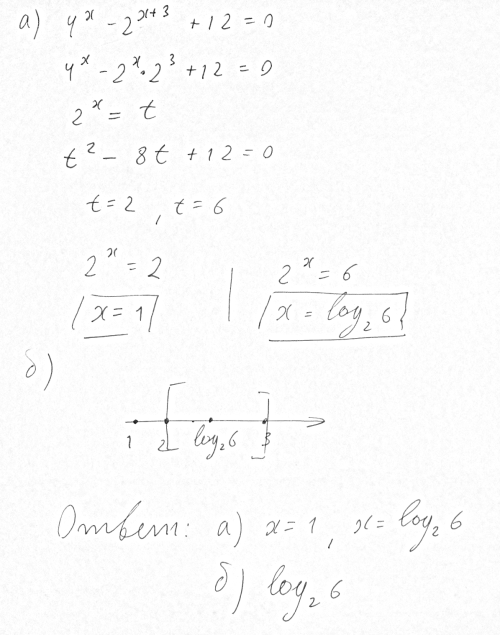 а) 4^x - 2^{x+3} + 12 = 0
4^x - 2^x · 2^3 + 12 = 0
2^x = t
t^2 - 8t + 12 = 0
t = 2 , t = 6
2^x = 2 | 2^x = 6
x = 1 | x = log_2 6
б)
1 2 log_2 6 3
Ответ: а) x = 1 , x = log_2 6
б) log_2 6